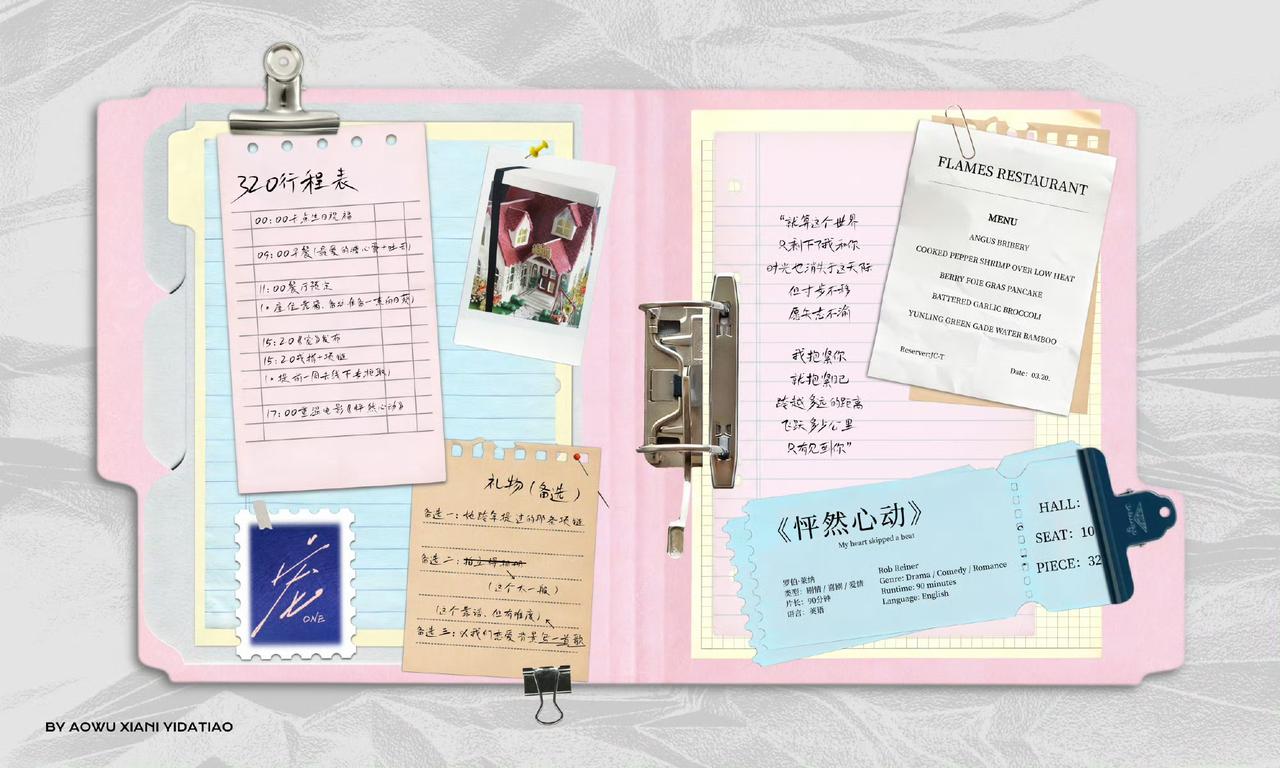 320行程表
00:00卡点生日祝福
09:00早餐(最爱的糖心蛋+吐司)
11:00餐厅预定
(*座位靠窗,
15:20《宠》发布
15:20戏搭+项链
(*提前一周去线下去抱取)
17:00重温电影《怦然心动》
礼物(备选)
备选一:她路车提过的那条项链
备选二:
(这个太一般)
(这个靠谱,但有难度)
备选三:以我们恋爱背景写一首歌
宠
ONE
“就算这个世界
只剩下下我和你
时光也消失于这天际
但寸步不移
原矢志不渝
我抱紧你
就抱紧自己
跨越多远的距离
飞跃多少公里
只有见到你”
FLAMES RESTAURANT
MENU
ANGUS BRIBERY
COOKED PEPPER SHRIMP OVER LOW HEAT
BERRY FOIE GRAS PANCAKE
BATTERED GARLIC BROCCOLI
YUNLING GREEN GADE WATER BAMBOO
Reserver:JC-T
Date: 03.20.
《怦然心动》
My heart skipped a beat
罗伯·莱纳
类型:剧情 / 喜剧 / 爱情
片长:90分钟
语言:英语
Rob Reiner
Genre: Drama / Comedy / Romance
Runtime: 90 minutes
Language: English
HALL:
SEAT: 10
PIECE: 32
BY AOWU XIANI YIDATIAO